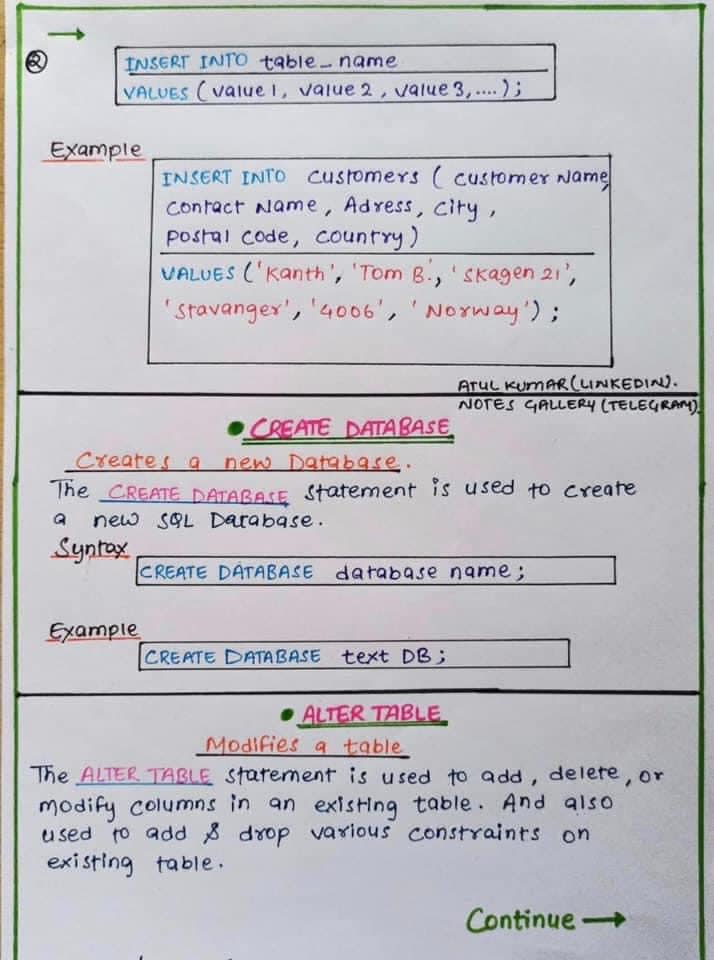 →
②
INSERT INTO table_name
VALUES (value1, value2, value3,....);
Example
INSERT INTO customers ( customer Name,
contact Name, Adress, city,
postal code, country)
VALUES ('Kanth', 'Tom B.', 'Skagen 21',
'Stavanger', '4006', 'Norway');
ATUL KUMAR (LINKEDIN).
NOTES GALLERY (TELEGRAM)
• CREATE DATABASE
Creates a new Database.
The CREATE DATABASE statement is used to create
a new SQL Database.
Syntax
CREATE DATABASE database name;
Example
CREATE DATABASE text DB;
• ALTER TABLE
Modifies a table
The ALTER TABLE statement is used to add, delete, or
modify columns in an existing table. And also
used to add & drop various constraints on
existing table.
Continue →